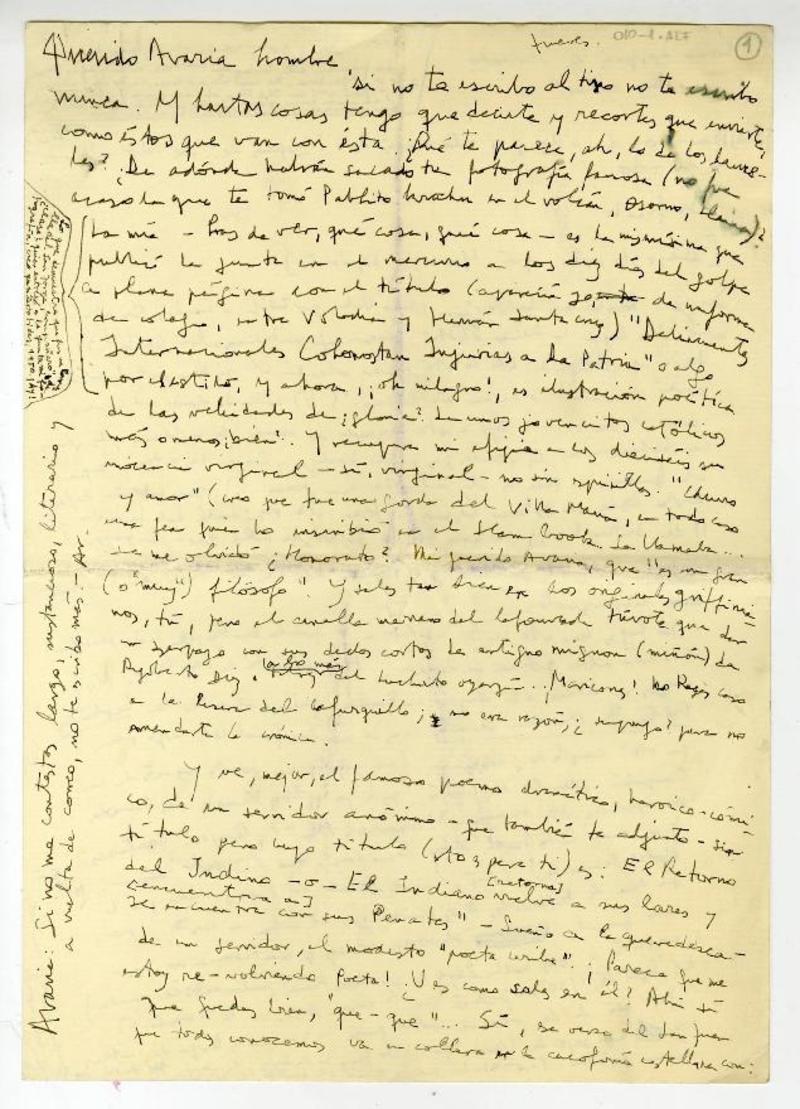 jueves.
1
Querido Avaria hombre
si no te escribo al tiro no te escribo
nunca. Y hartas cosas tengo que decirte y recortes que enviarte,
como éstos que van con ésta. ¿Qué te parece, ah, lo de los laure-
les? ¿De adónde habrán sacado tu fotografía famosa (no fue
acaso la que te tomó Pablito en el volcán, Osorno,
La mía - has de ver, qué cosa, qué cosa - es la mismísima que
publicó la junta en el mercurio a los diez días del golpe
a plana página con el título (aparecía yo de uniforme
de colegio, entre Volodia y Hernán Santa Cruz) "Delincuentes
Internacionales Cohonestan Injurias a la Patria" o algo
por el estilo, y ahora, ¡oh milagro!, es ilustración poética
de las velocidades de ¿gloria? de unos jovencitos católicos
más o menos ¡bien!. Y recupera mi efigie a los dieciséis su
inocencia virginal - sí, virginal - no sin espinillas. "
y amor" (creo que fue una gorda del Villa María, en todo caso
una fea quien lo inscribió en el Slam book. Se llamaba...
se me olvidó ¿Honorato? Mi querido Avaria, que "es un gran
(o "muy") filósofo". Y sales tan bien en los originales
nos, tú, pero el canalla del Lafourcade túvote que dar
un con sus dedos cortos de antiguo mignon (miñón) de
algo más
del Luchito Oyarzún... ¡Maricones! No hagas caso
a la del ; no era razón, ¿ ? para no
mandarte la crónica.
Y ve, mejor, el famoso poema dramático, heroico-cómi-
co, de un servidor anónimo - que también te adjunto - sin
título pero cuyo título (sto para ti) es: El Retorno
del Indino - o - El Indiano vuelve [retorna] a sus lares y
[encuentra a]
se encuentra con sus Penates" - Sueño a la quevedesca -
de un servidor, el modesto "poeta caribe". ¡Parece que me
estoy re-volviendo Poeta! ¿Ves como sales en él? Ahí sí
que quedas bien, "que - que"... Sí, ese verso del San Juan
que todos conocemos va en collera en la cacofonía castellana con:
Avaria: Si no me contestas largo, sustancioso, literario y
a vuelta de correo, no te escribo más. - Ar.